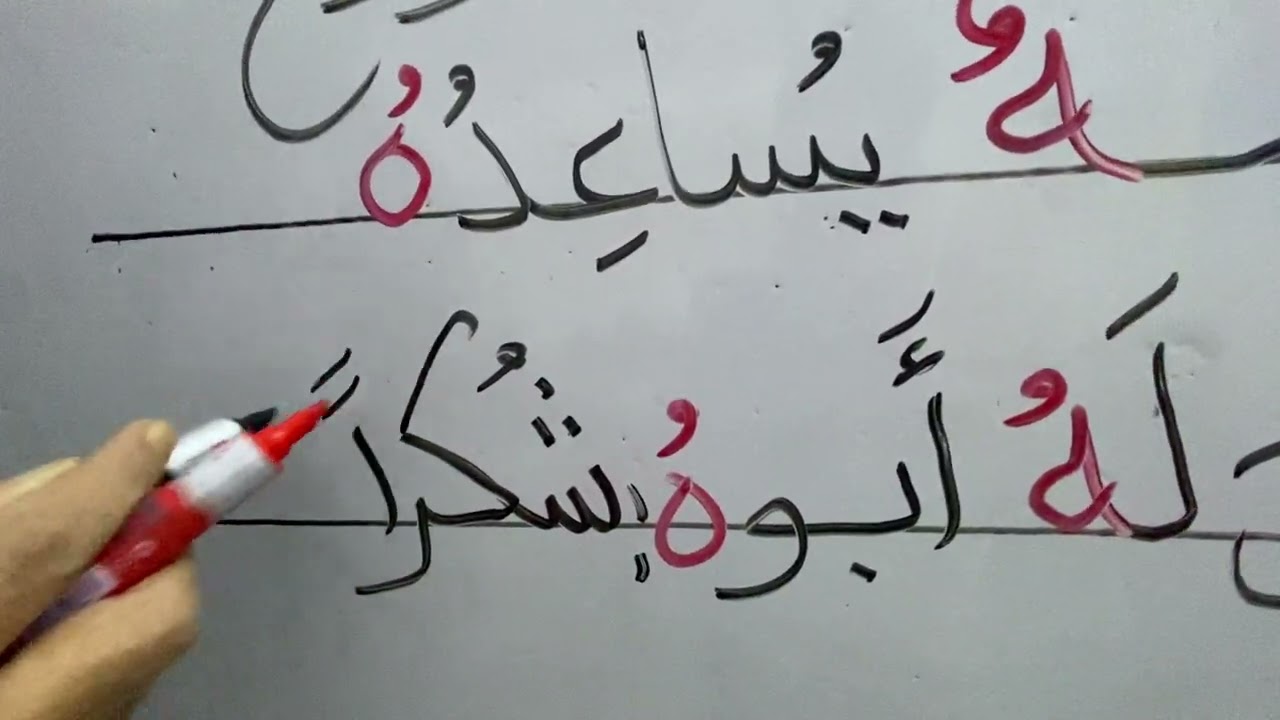 يُساعِدُهُ
لَهُ أَبوهُ : شُكراً